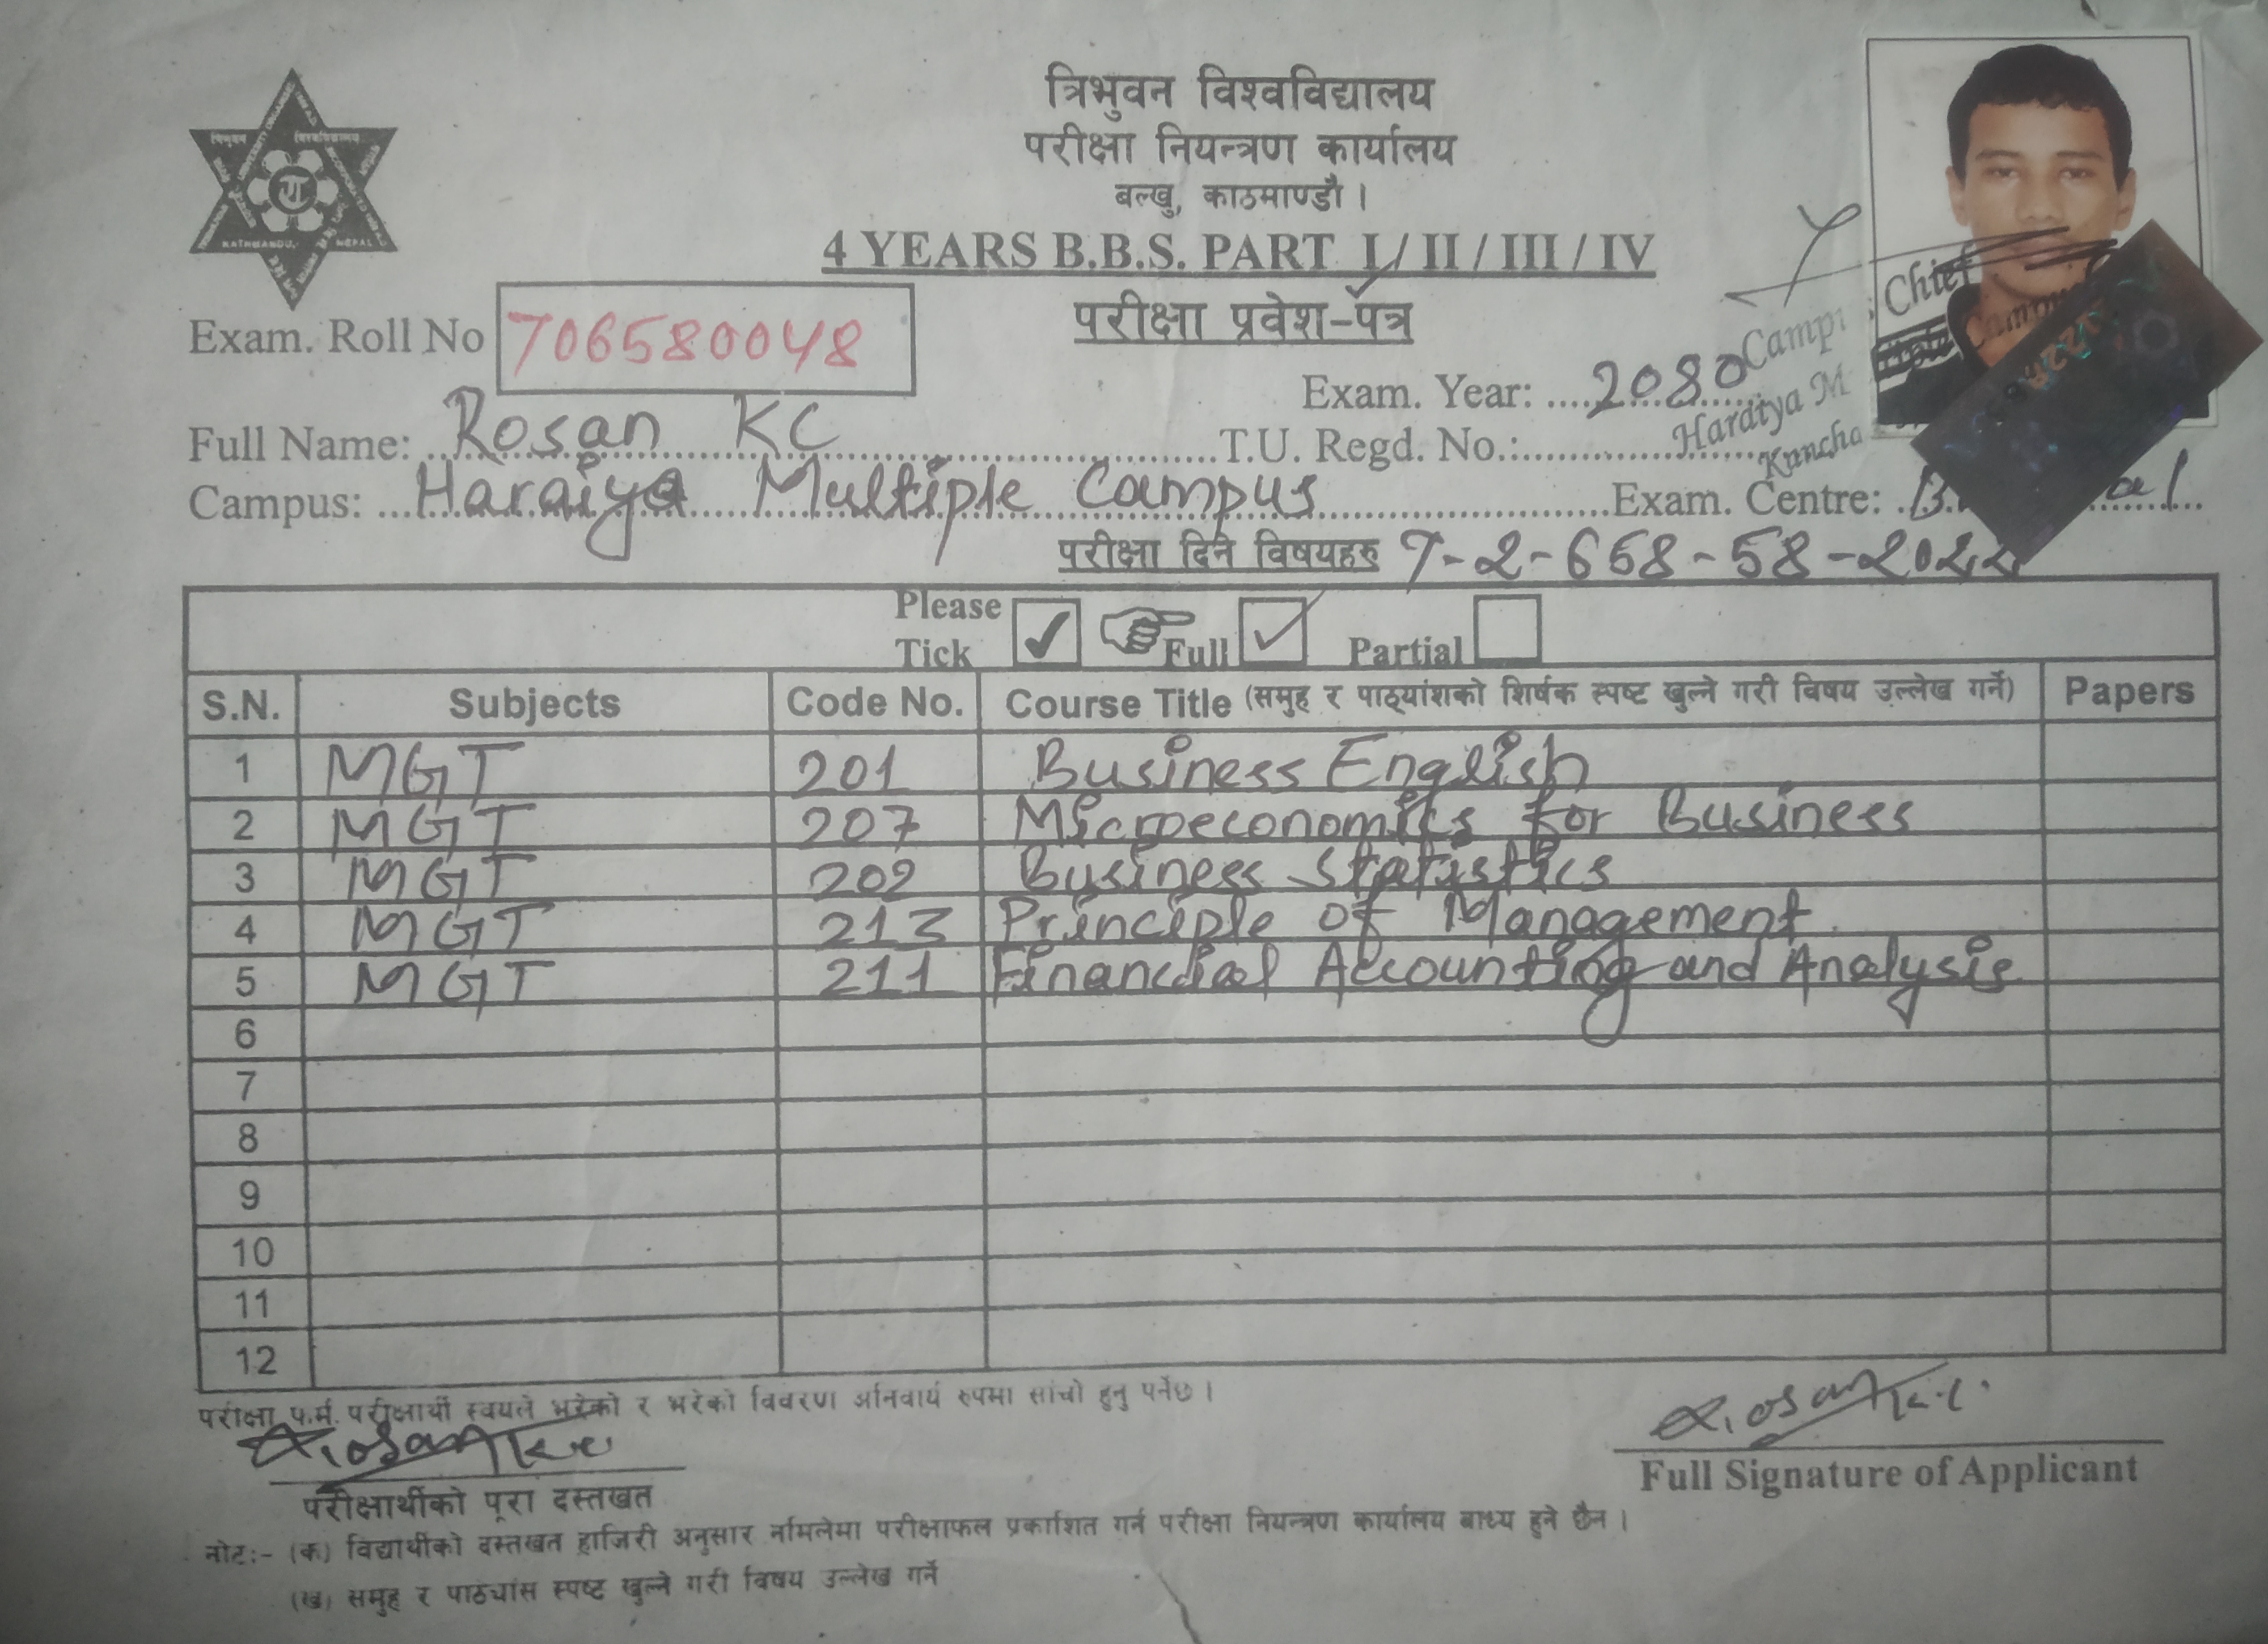 त्रिभुवन विश्वविद्यालय
परीक्षा नियन्त्रण कार्यालय
बल्खु, काठमाण्डौ ।
4 YEARS B.B.S. PART I / II / III / IV
परीक्षा प्रवेश-पत्र
Exam. Roll No 706580048
Exam. Year: 2080
Full Name: Rosan KC T.U. Regd. No.:
Campus: Haraiya Multiple Campus Exam. Centre:
Chief
परीक्षा दिने विषयहरु 7-2-658-58-2022
Please Tick ✓ Full ✓ Partial
S.N. Subjects Code No. Course Title (समुह र पाठ्यांशको शिर्षक स्पष्ट खुल्ने गरी विषय उल्लेख गर्ने) Papers
1 MGT 201 Business English
2 MGT 207 Microeconomics for Business
3 MGT 202 Business Statistics
4 MGT 213 Principle of Management
5 MGT 211 Financial Accounting and Analysis
6
7
8
9
10
11
12
परीक्षा फर्म परीक्षार्थी स्वयंले भरेको र भरेको विवरण अनिवार्य रुपमा सांचो हुनु पर्नेछ ।
Rosan K.C.
Full Signature of Applicant
Rosan Kc
परीक्षार्थीको पूरा दस्तखत
नोटः- (क) विद्यार्थीको दस्तखत हाजिरी अनुसार नमिलेमा परीक्षाफल प्रकाशित गर्न परीक्षा नियन्त्रण कार्यालय बाध्य हुने छैन ।
(ख) समुह र पाठ्यांस स्पष्ट खुल्ने गरी विषय उल्लेख गर्ने